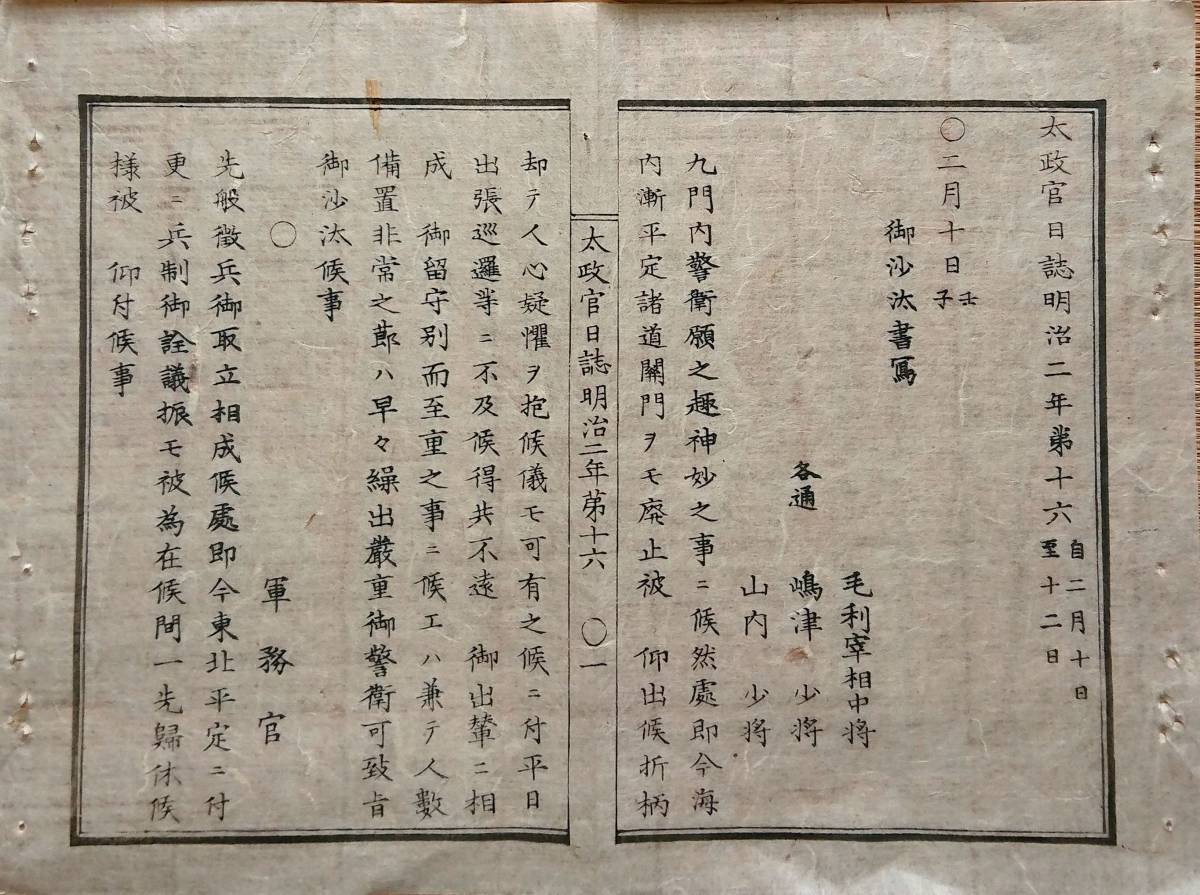 太政官日誌明治二年第十六自二月十日至十二日
〇二月十日壬子
御沙汰書寫
毛利宰相中將
各通 嶋津 少將
山内 少將
九門内警衛願之趣神妙之事ニ候然處即今海
内漸平定諸道關門ヲモ廃止被 仰出候折柄
太政官日誌明治二年第十六 〇一
却テ人心疑懼ヲ抱候儀モ可有之候ニ付平日
出張巡邏等ニ不及候得共不遠 御出輦ニ相
成 御留守別而至重之事ニ候エハ兼テ人數
備置非常之節ハ早々繰出嚴重御警衛可致旨
御沙汰候事
〇 軍務官
先般徴兵御取立相成候處即今東北平定ニ付
更ニ兵制御詮議振モ被為在候間一先歸休候
様被 仰付候事